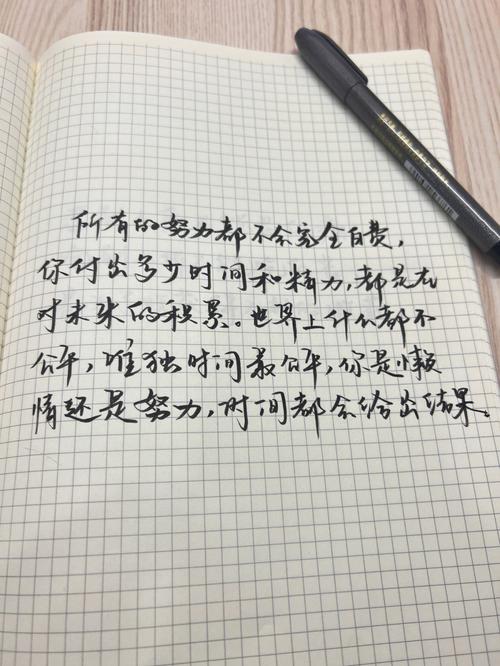 所有的努力都不会完全白费，
你付出多少时间和精力，都是在
对未来的积累。世界上什么都不
公平，唯独时间最公平，你是懒
惰还是努力，时间都会给出结果。